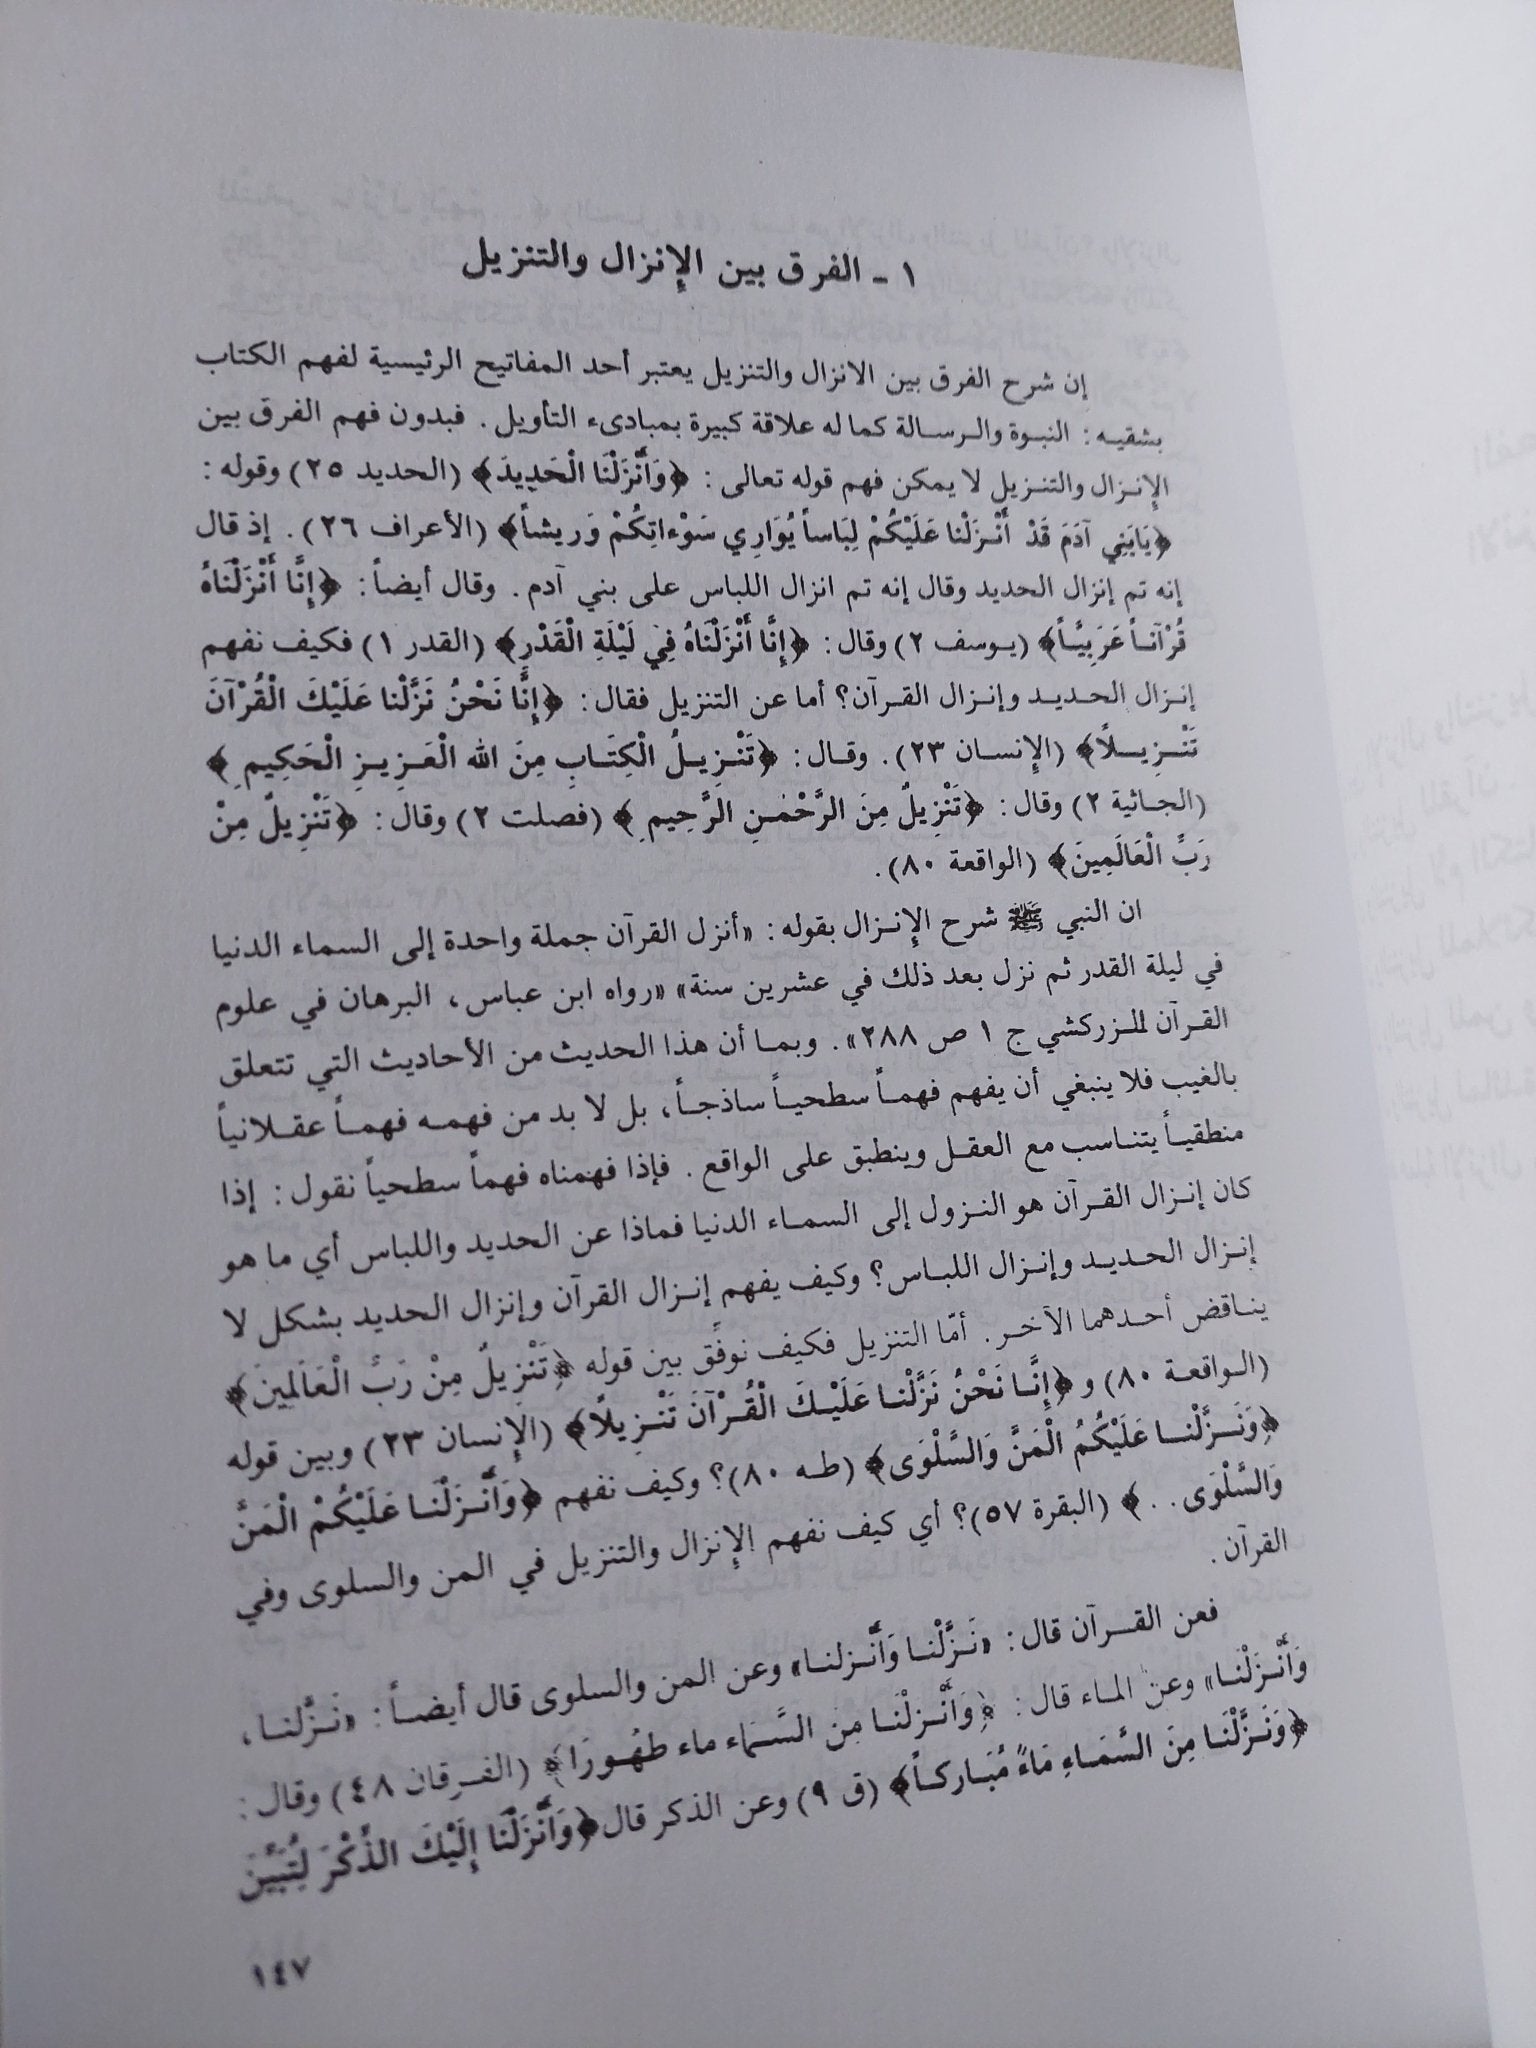 ١ - الفرق بين الإنزال والتنزيل
إن شرح الفرق بين الانزال والتنزيل يعتبر أحد المفاتيح الرئيسية لفهم الكتاب
بشقيه: النبوة والرسالة كما له علاقة كبيرة بمبادىء التأويل. فبدون فهم الفرق بين
الإنزال والتنزيل لا يمكن فهم قوله تعالى: ﴿وَأَنْزَلْنَا الْحَدِيدَ﴾ (الحديد ٢٥) وقوله:
﴿يَابَنِي آدَمَ قَدْ أَنْزَلْنا عَلَيْكُمْ لِبَاساً يُوَارِي سَوْءاتِكُمْ وَرِيشاً﴾ (الأعراف ٢٦). إذ قال
إنه تم إنزال الحديد وقال إنه تم انزال اللباس على بني آدم. وقال أيضاً: ﴿إِنَّا أَنْزَلْنَاهُ
قُرْآنـاً عَرَبِيَّاً﴾ (يوسف ٢) وقال: ﴿إِنَّا أَنْزَلْنَاهُ فِي لَيْلَةِ الْقَدْرِ﴾ (القدر ١) فكيف نفهم
إنزال الحديد وإنزال القرآن؟ أما عن التنزيل فقال: ﴿إِنَّا نَحْنُ نَزَّلْنا عَلَيْكَ الْقُرْآنَ
تَنْزِيلاً﴾ (الإنسان ٢٣). وقال: ﴿تَنْزِيلُ الْكِتَابِ مِنَ الله الْعَزِيزِ الْحَكِيمِ﴾
(الجاثية ٢) وقال: ﴿تَنْزِيلٌ مِنَ الرَّحْمٰنِ الرَّحِيمِ﴾ (فصلت ٢) وقال: ﴿تَنْزِيلٌ مِنْ
رَبِّ الْعَالَمِينَ﴾ (الواقعة ٨٠).
ان النبي ﷺ شرح الإنزال بقوله: «أنزل القرآن جملة واحدة إلى السماء الدنيا
في ليلة القدر ثم نزل بعد ذلك في عشرين سنة» «رواه ابن عباس، البرهان في علوم
القرآن للزركشي ج ١ ص ٢٨٨». وبما أن هذا الحديث من الأحاديث التي تتعلق
بالغيب فلا ينبغي أن يفهم فهماً سطحياً ساذجاً، بل لا بد من فهمه فهماً عقلانياً
منطقياً يتناسب مع العقل وينطبق على الواقع. فإذا فهمناه فهماً سطحياً نقول: إذا
كان إنزال القرآن هو النزول إلى السماء الدنيا فماذا عن الحديد واللباس أي ما هو
إنزال الحديد وإنزال اللباس؟ وكيف يفهم إنزال القرآن وإنزال الحديد بشكل لا
يناقض أحدهما الآخر. أمّا التنزيل فكيف نوفِّق بين قوله ﴿تَنْزِيلٌ مِنْ رَبِّ الْعَالَمِينَ﴾
(الواقعة ٨٠) و ﴿إِنَّا نَحْنُ نَزَّلْنا عَلَيْكَ الْقُرْآنَ تَنْزِيلاً﴾ (الإنسان ٢٣) وبين قوله
﴿وَنَزَّلْنَا عَلَيْكُمُ الْمَنَّ وَالسَّلْوَى﴾ (طه ٨٠)؟ وكيف نفهم ﴿وَأَنْزَلْنَا عَلَيْكُمْ الْمَنَّ
وَالسَّلْوَى..﴾ (البقرة ٥٧)؟ أي كيف نفهم الإنزال والتنزيل في المن والسلوى وفي
القرآن.
فعن القرآن قال: «نَزَّلْنا وَأَنْزلنا» وعن المن والسلوى قال أيضاً: «نَزَّلنا،
وَأَنْزَلْنَا» وعن الماء قال: ﴿وَأَنْزلْنَا مِنَ السَّمَاء ماء طهُورَا﴾ (الفرقان ٤٨) وقال:
﴿وَنَزَّلْنَا مِنَ السَّمَاءِ مَاءً مُبَاركاً﴾ (ق ٩) وعن الذكر قال ﴿وَأَنْزَلْنَا إِلَيْكَ الذِّكْرَ لِتُبَيِّنَ
١٤٧